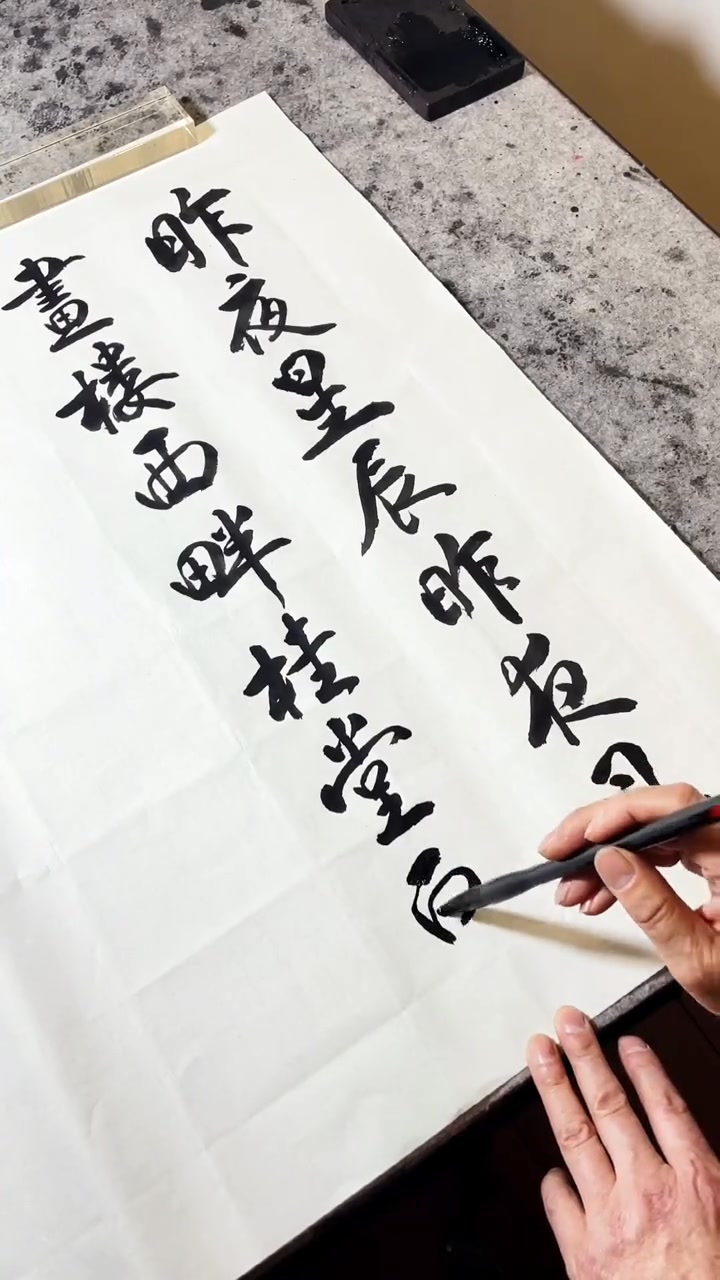 昨夜星辰昨夜
畫樓西畔桂堂